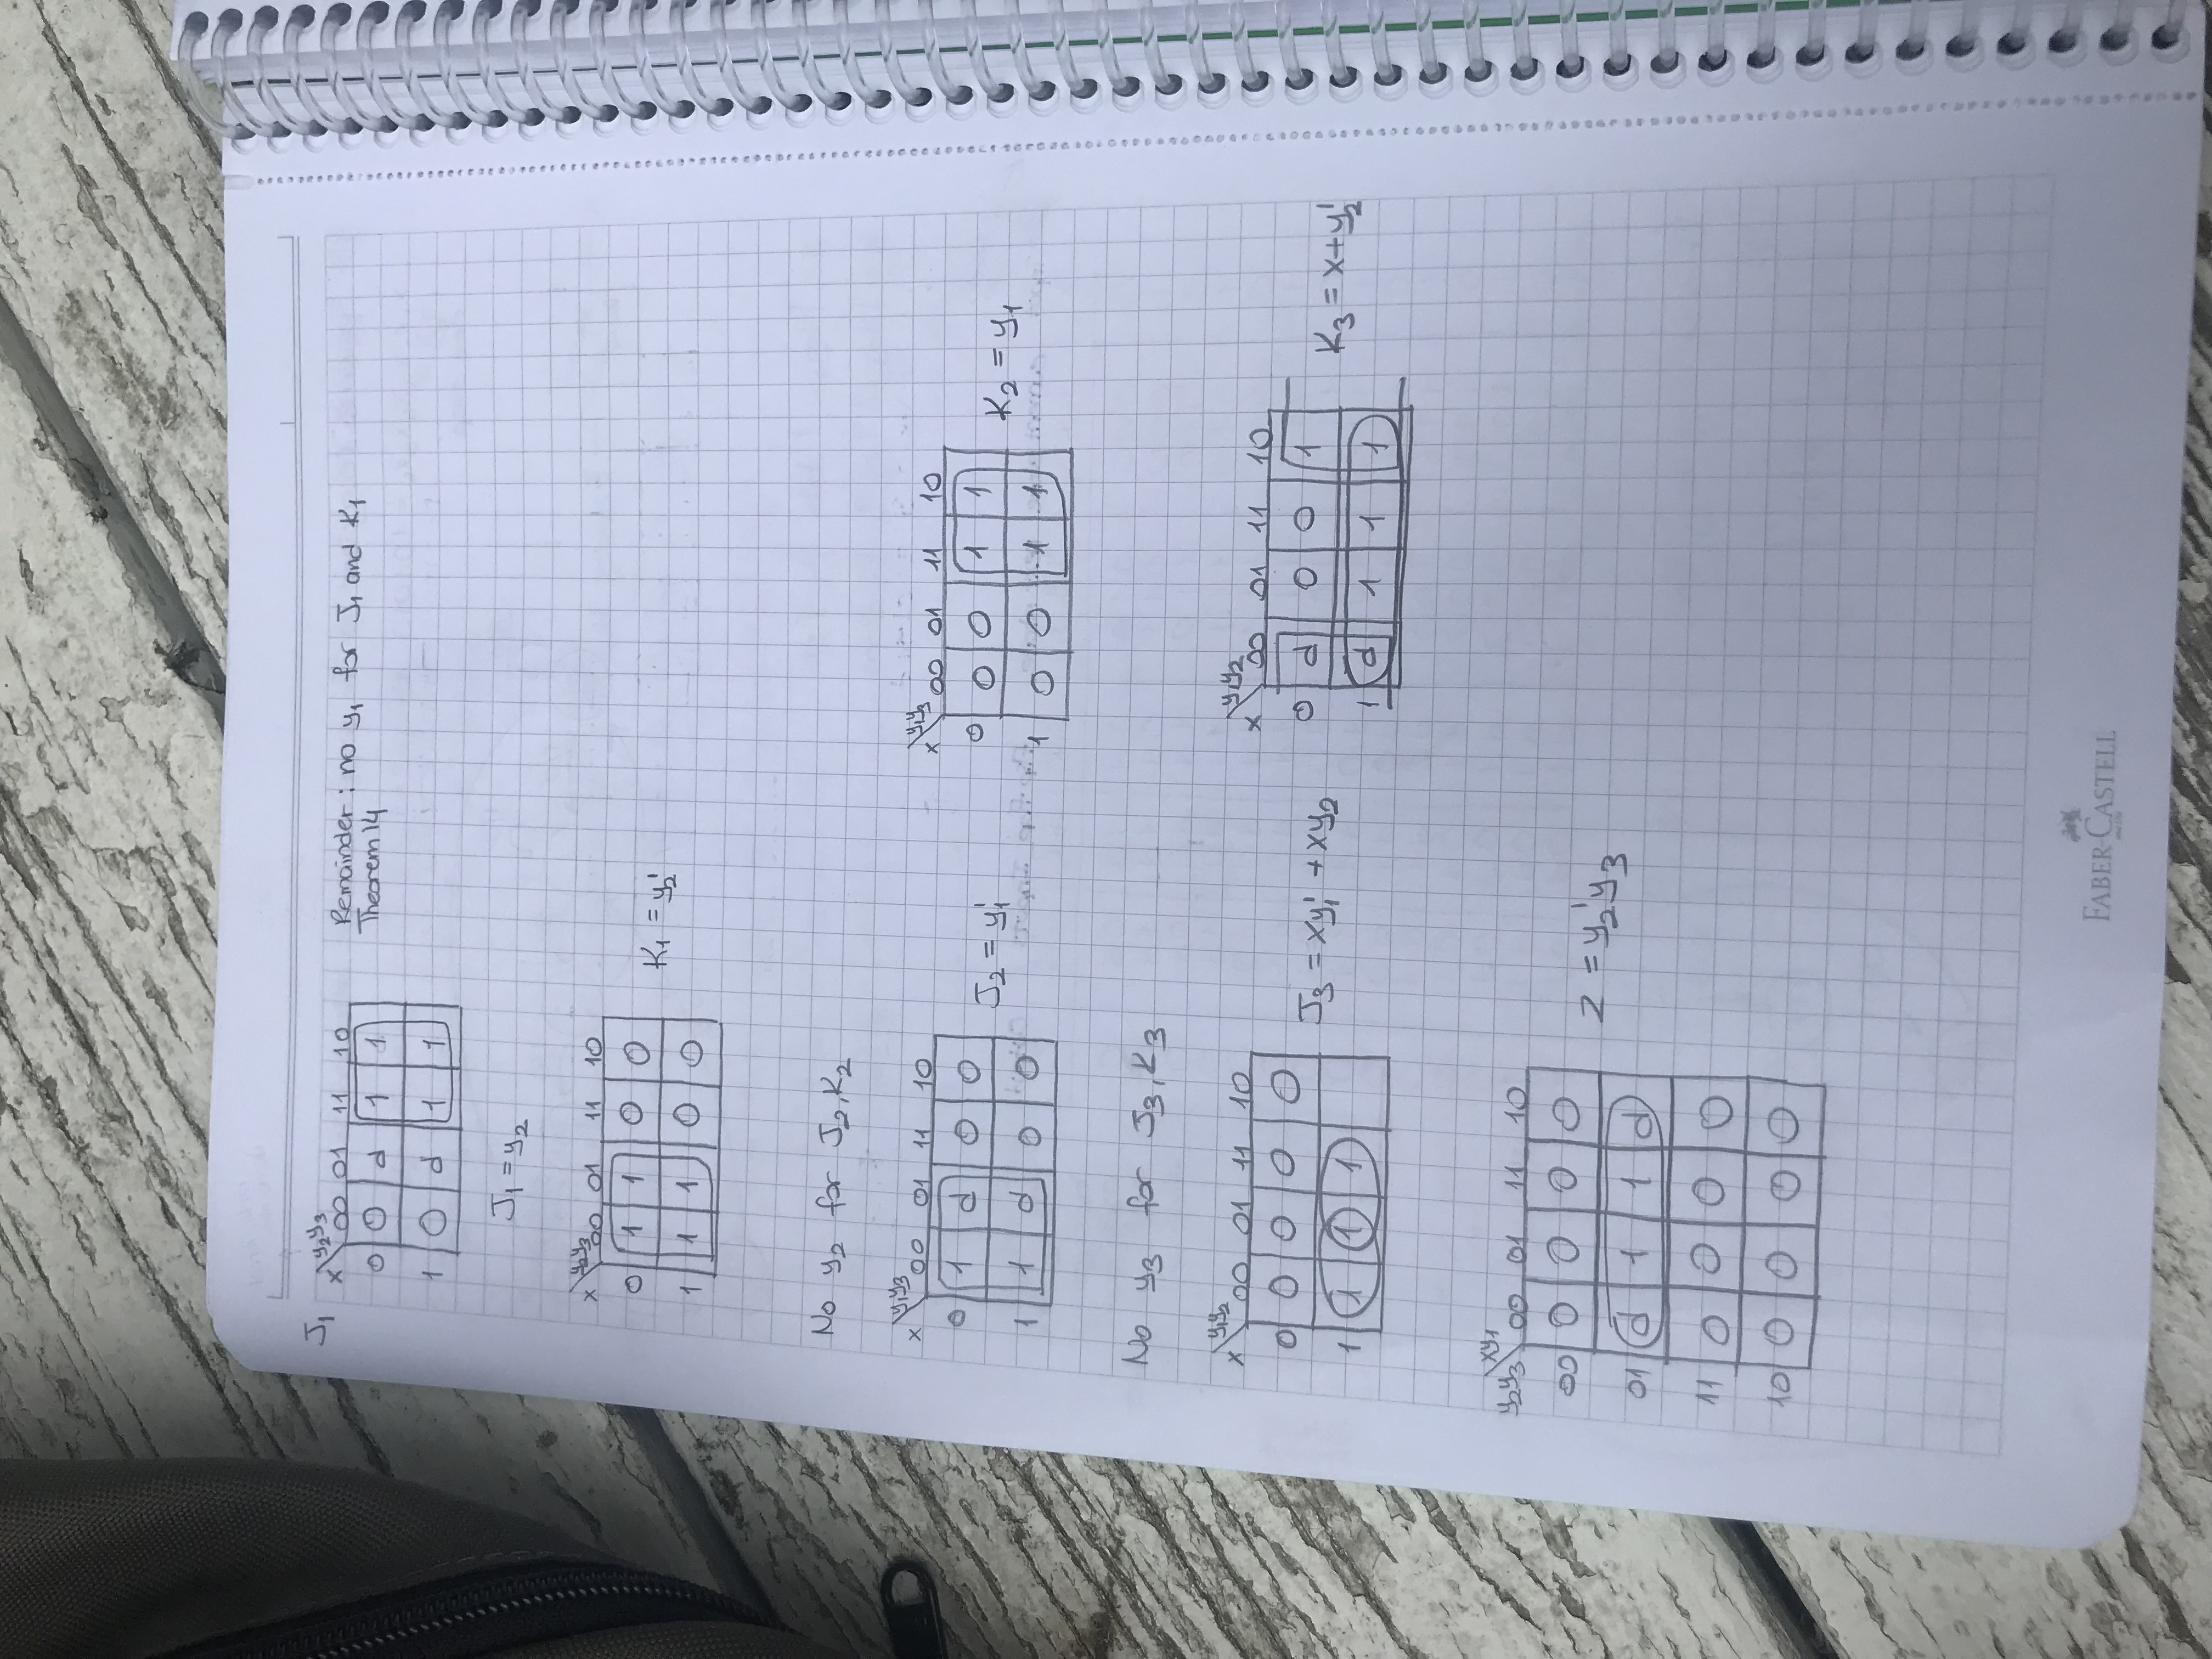 J1
x \ y2y3 00 01 11 10
0 0 d 1 1
1 0 d 1 1
Remainder : no y1 for J1 and K1
Theorem 14
J1 = y2
x \ y2y3 00 01 11 10
0 1 1 0 0
1 1 1 0 0
K1 = y2'
No y2 for J2, K2
x \ y1y3 00 01 11 10
0 1 d 0 0
1 1 d 0 0
J2 = y1'
x \ y1y3 00 01 11 10
0 0 0 1 1
1 0 0 1 1
K2 = y1
No y3 for J3, K3
x \ y1y2 00 01 11 10
0 0 0 0 0
1 1 1 1
J3 = xy1' + xy2
x \ y1y2 00 01 11 10
0 d 0 0 1
1 d 1 1 1
K3 = x+y2'
y2y3 \ xy1 00 01 11 10
00 0 0 0 0
01 d 1 1 d
11 0 0 0 0
10 0 0 0 0
z = y2'y3
FABER-CASTELL